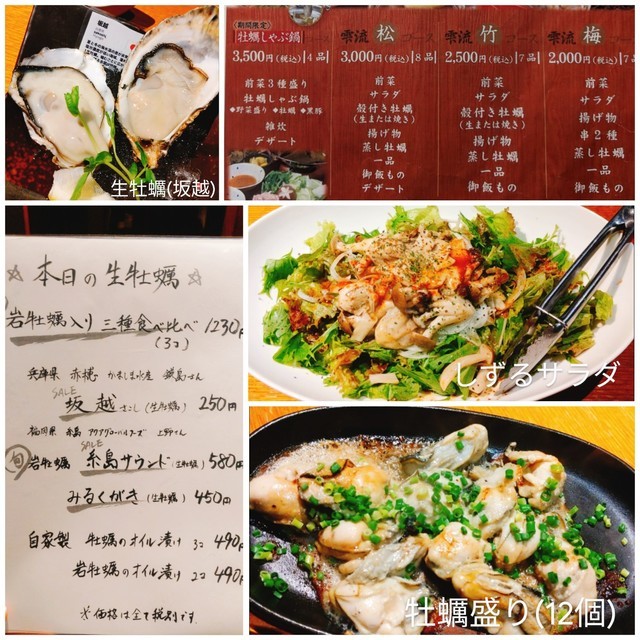 坂越
生牡蠣(坂越)
期間限定
牡蠣しゃぶ鍋
3,500円(税込)
4品
前菜3種盛り
牡蠣しゃぶ鍋
◆野菜盛り ◆牡蠣 ◆黒豚
雑炊
デザート
雫流 松 コース
3,000円(税込)
8品
前菜
サラダ
殻付き牡蠣
(生または焼き)
揚げ物
蒸し牡蠣
一品
御飯もの
デザート
雫流 竹 コース
2,500円(税込)
7品
前菜
サラダ
殻付き牡蠣
(生または焼き)
揚げ物
蒸し牡蠣
一品
御飯もの
雫流 梅 コース
2,000円(税込)
前菜
サラダ
揚げ物
串2種
蒸し牡蠣
一品
御飯もの
☆本日の生牡蠣☆
岩牡蠣入り 三種食べ比べ 1230円
(3コ)
兵庫県 赤穂
SALE
坂越 さこし (生牡蠣) 250円
福岡県 糸島
SALE
旬 岩牡蠣 糸島サウンド (生牡蠣) 580円
みるくがき (生牡蠣) 450円
自家製 牡蠣のオイル漬け 3コ 490円
岩牡蠣のオイル漬け 2コ 490円
※価格は全て税別です。
しずるサラダ
牡蠣盛り(12個)